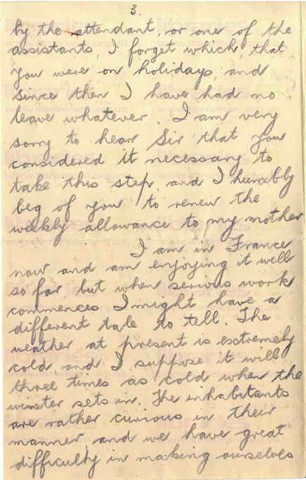 3.
by the attendant, or one of the
assistants, I forget which, that
you were on holidays, and
since then I have had no
leave whatever. I am very
sorry to hear Sir that you
considered it necessary to
take this step, and I humbly
beg of you to renew the
weekly allowance to my mother
I am in France
now and am enjoying it well
so far but when serious work
commences I might have a
different tale to tell. The
weather at present is extremely
cold and I suppose it will
three times as cold when the
winter sets in. The enhabitants
are rather curious in their
manner and we have great
difficulty in making ourselves